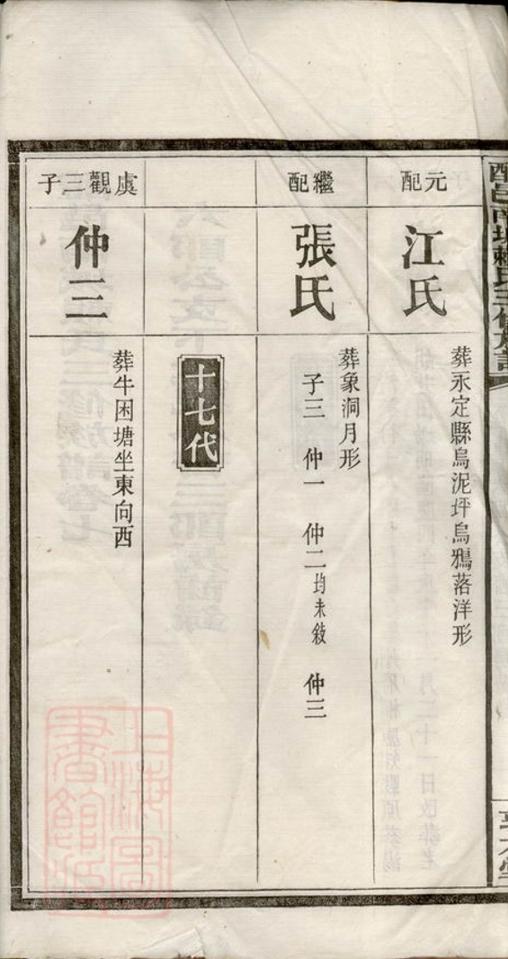 元配
江氏
葬永定縣烏泥坪烏鴉落洋形
繼配
張氏
葬象洞月形
子三 仲一 仲二均未敍 仲三
十七代
虞觀三子
仲三
葬牛困塘坐東向西
上海圖書館藏